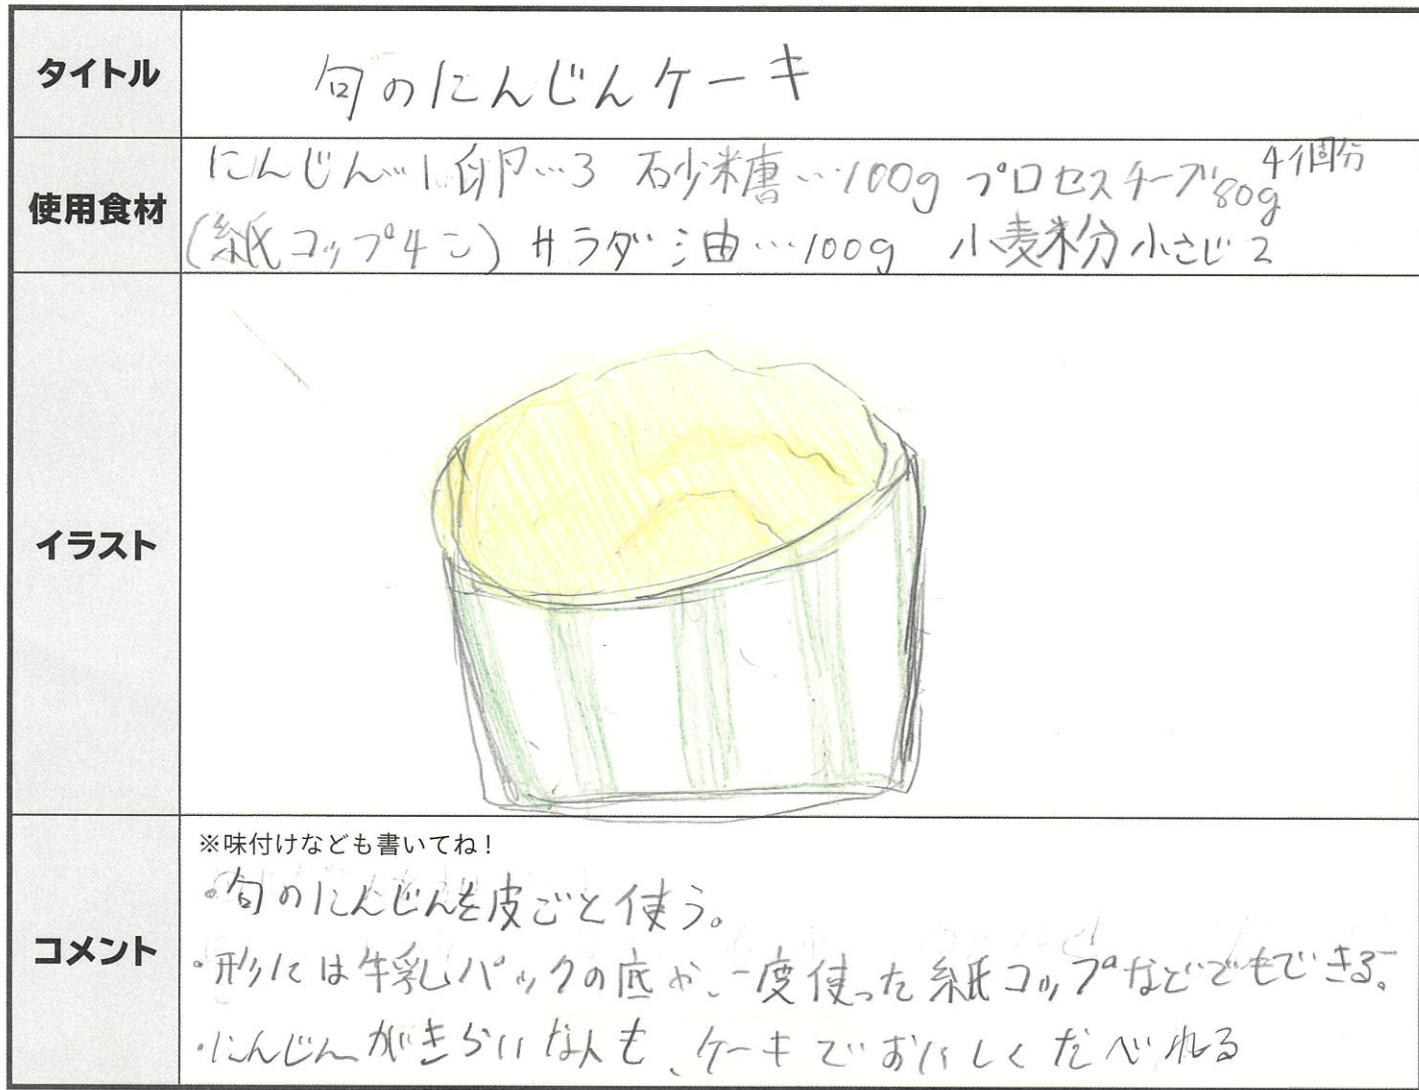 タイトル
旬のにんじんケーキ
使用食材
にんじん…1 卵…3 砂糖…100g プロセスチーズ80g 4個分
(紙コップ4こ) サラダ油…100g 小麦粉小さじ2
イラスト
コメント
※味付けなども書いてね!
・旬のにんじんを皮ごと使う。
・形には牛乳パックの底や、一度使った紙コップなどでもできる。
・にんじんがきらいな人も、ケーキでおいしくたべれる